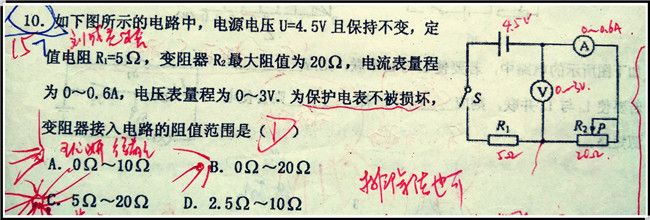 10. 如下图所示的电路中，电源电压 U=4.5V 且保持不变，定
值电阻 R₁=5Ω，变阻器 R₂最大阻值为 20Ω，电流表量程
为 0～0.6A，电压表量程为 0～3V. 为保护电表不被损坏，
变阻器接入电路的阻值范围是（    ）
A. 0Ω～10Ω    B. 0Ω～20Ω
C. 5Ω～20Ω    D. 2.5Ω～10Ω
排除法也可
4.5V
0～0.6A
A
V
0～3V
S
R₁
R₂
P
5Ω
20Ω